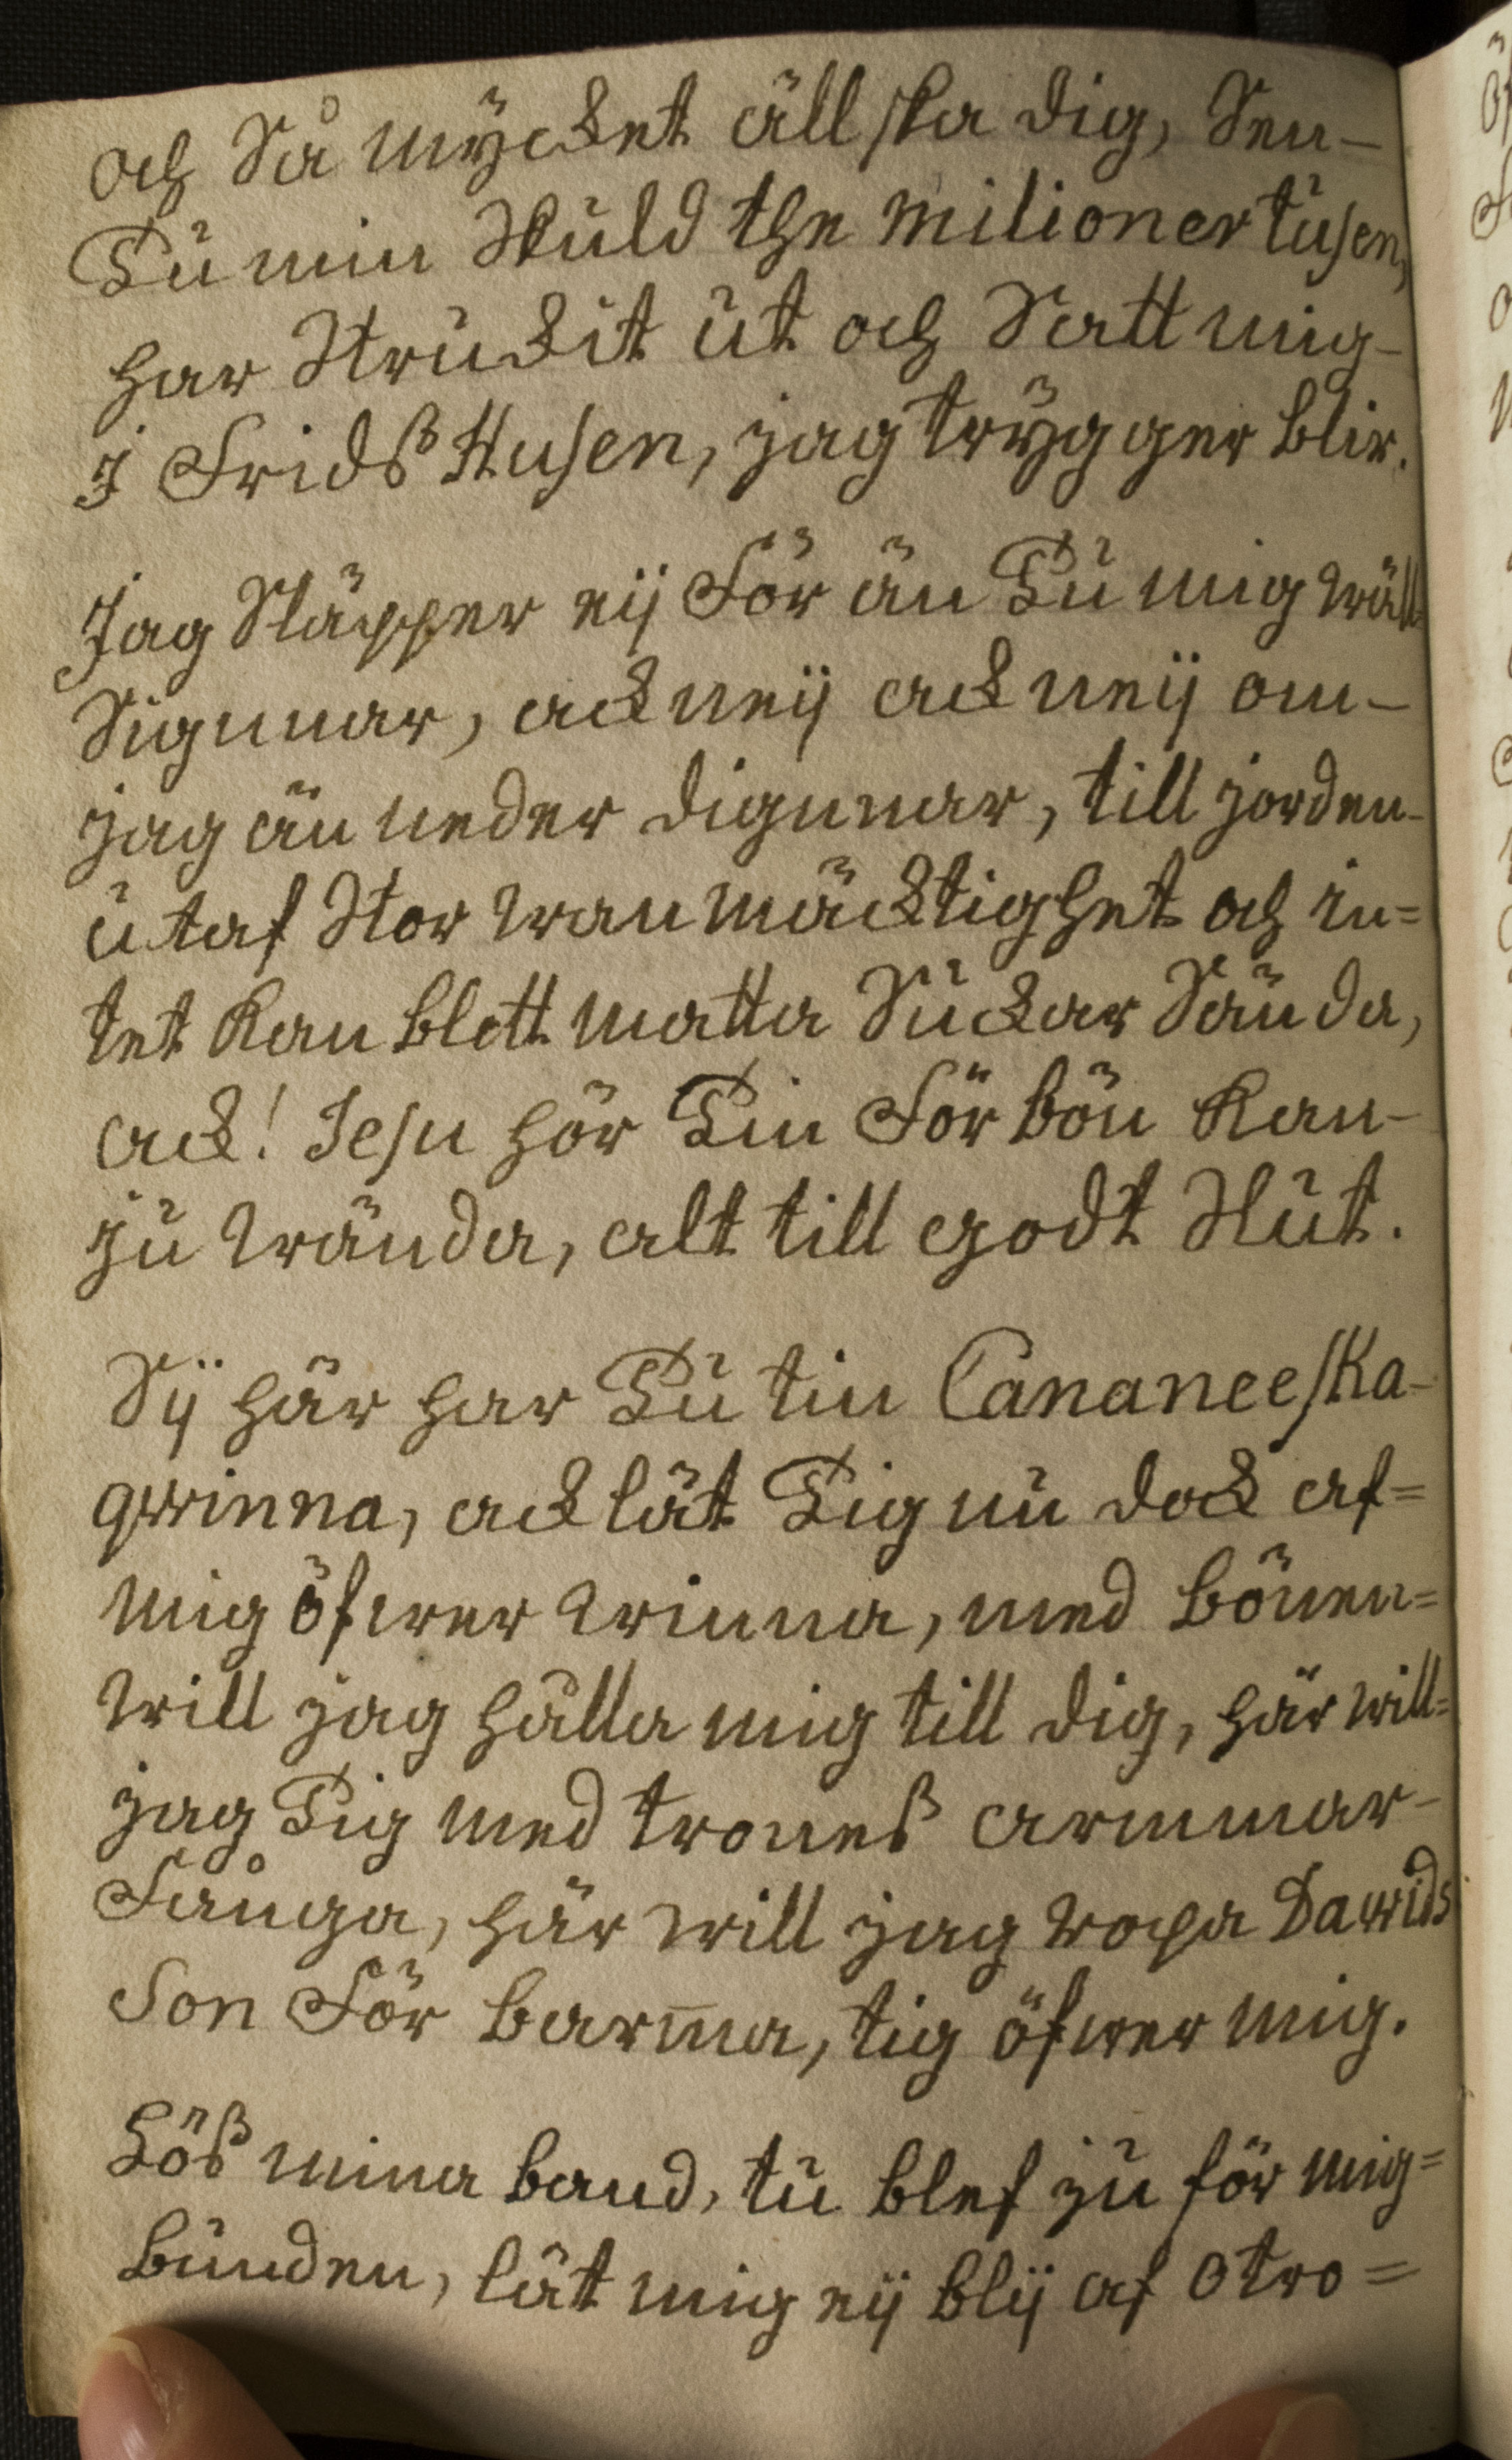 och Så mycket ällska dig, Sen-
Tu min Skuld the milioner tusen,
har Struckit ut och Satt mig-
J Fridß Husen, jag trygger blir.
Jag Släpper eij För än Tu mig wäll
Signnar, ack neij ack neij om-
jag än neder dignnar, till jorden-
utaf Stor wanmäcktighet och in=
tet kan blott matta Suckar Sända,
ack! Jesu hör Din Förbön kan-
ju wända, alt till godt Slut.
Sij här har Tu tin Cananeeska-
qwinna, ack låt Tig nu dock af=
mig öfwer winna, med bönen=
will jag hålla mig till dig, här will=
jag Tig med troneß armmar-
Fånga, här will jag ropa Dawids
Son För barm̄a, tig öfwer mig.
Löß mina band, tu blef ju för mig=
bunden, låt mig eij blij af otro=